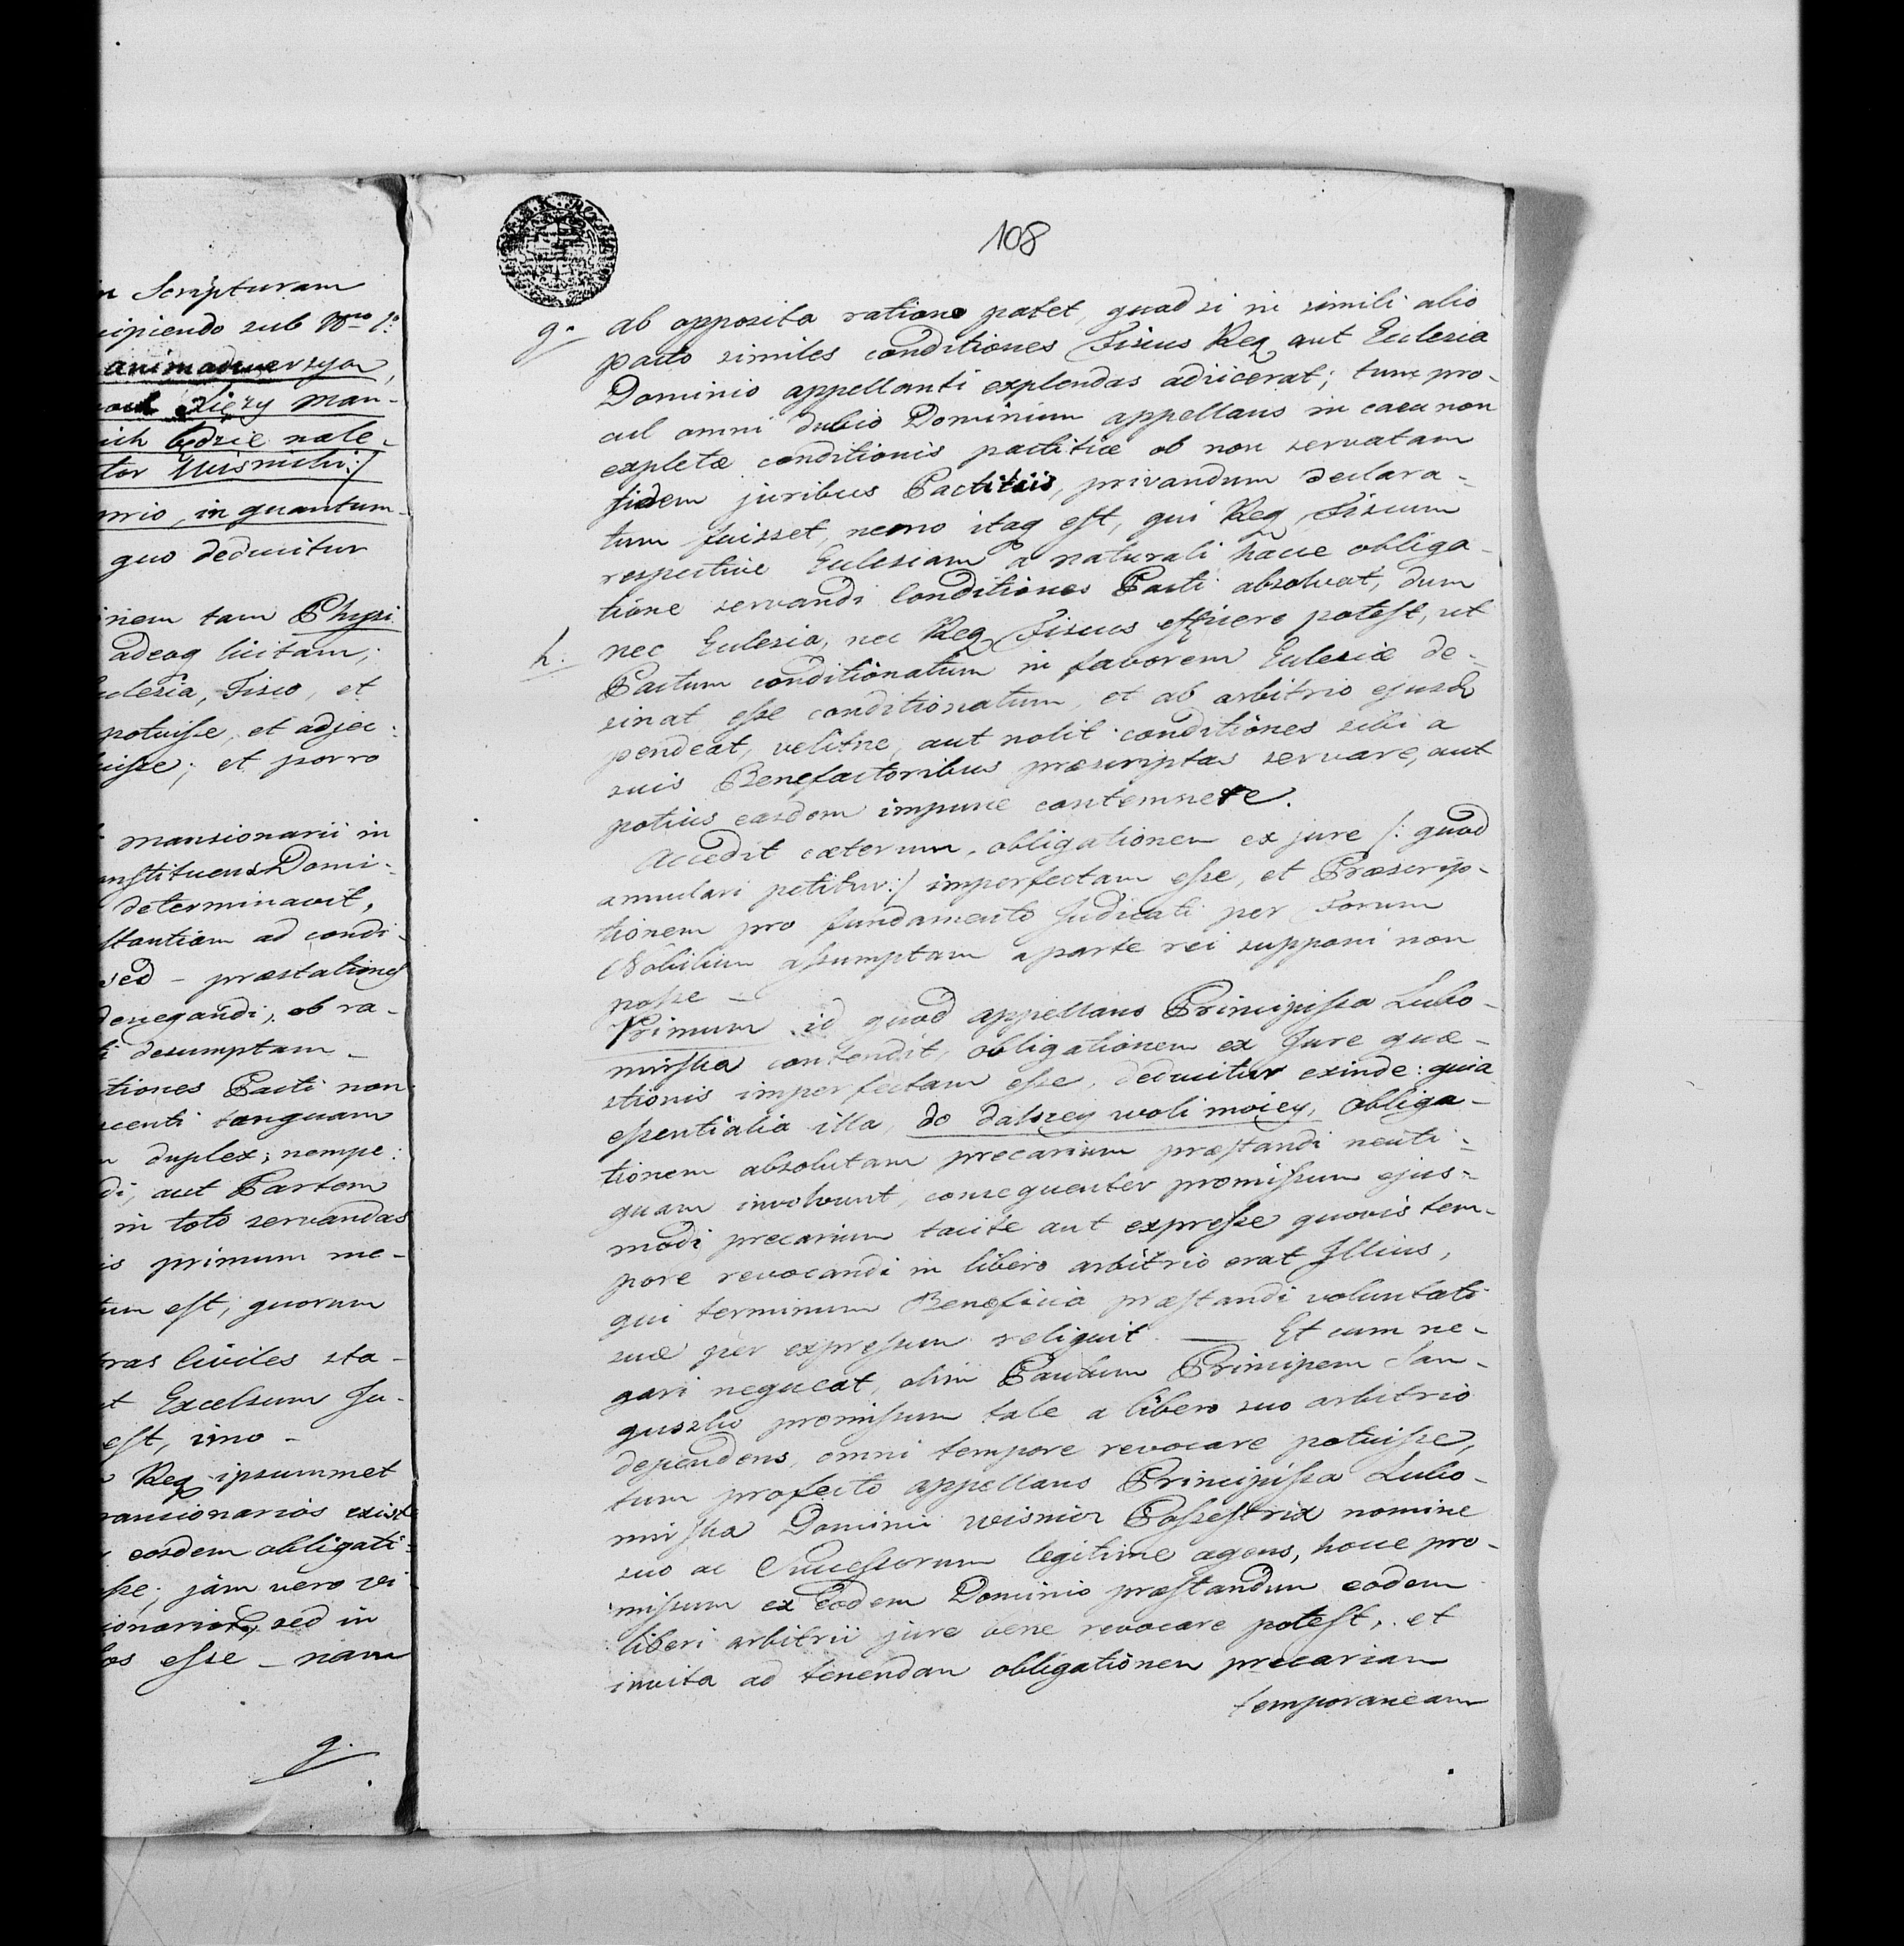 n Scripturam
cipiendo sub Nro 1o:
animadwersya,
xięży man-
ich będzie nale-
tor Uiśmichi:/
nrio, in quantum-
quo deducitur
inem tam Physi
adeoq licitam;
clesia, Fisco, et
potuisse, et adjec:
uisse; et porro
mansionarii in
nstituens Domi-
determinavit,
stantiam ad condi-
sed - præstationes
denegandi, ob ra-
i desumptam -
tiones Pacti non
centi tanquam
duplex; nempe:
di, aut Partem
in toto servandas
is primum me-
tum est, quorum
tras Civiles sta-
t Excelsum Ju-
est, imo -
Reg ipsummet
mansionarios exist
eosdem obligati-
sse; jam vero vi
ionarios, sed in
los esse - nam
g.
108
g. ab opposita ratione patet, quod si in simili alio
pacto similes conditiones Fiscus Reg aut Ecclesia
Dominio appellanti explendas adiicerat; tunc pro-
cul omni dubio Dominium appellans in casu non
expletæ conditionis pactitiæ ob non servatam
fidem juribus Pactitiis, privandum declara-
tum fuisset, nemo itaq est, qui Reg Fiscum
respective Ecclesiam a naturali hacce obliga-
tione servandi Conditiones Pacti absolvat, dum
h. nec Ecclesia, nec Reg Fiscus efficere potest, ut
Pactum conditionatum in favorem Ecclesiæ de-
sinat esse conditionatum, et ab arbitrio ejusd
pendeat, velitne, aut nolit conditiones sibi a
suis Benefactoribus præscriptas servare, aut
potius easdem impune contemnere.
Accedit cæterum, obligationem ex jure /: quod
annulari petitur:/ imperfectam esse, et Præscrip-
tionem pro fundamento Judicati per Forum
Nobilium assumptam a parte rei supponi non
posse -
Primum id quod appellans Principissa Lubo-
mirska contendit, obligationem ex Jure quæ-
stionis imperfectam esse, deducitur exinde: quia
essentialia illa, do dalszey woli moiey, obliga-
tionem absolutam precarium præstandi neuti-
quam involvunt, consequenter promissum ejus-
modi precarium tacite aut expresse quovis tem-
pore revocandi in libero arbitrio erat Illius,
qui terminum Beneficia præstandi voluntati
suæ per expressum reliquit. — Et cum ne-
gari nequeat, olim Paulum Principem San-
guszko promissum tale a libero suo arbitrio
dependens, omni tempore revocare potuisse,
tum profecto appellans Principissa Lubo-
mirska Dominii Wisnicz Possestrix nomine
suo ac Successorum legitime agens, hocce pro-
missum ex Eodem Dominio præstandum eodem
liberi arbitrii jure bene revocare potest, et
invita ad tenendam obligationem precariam
temporaneam